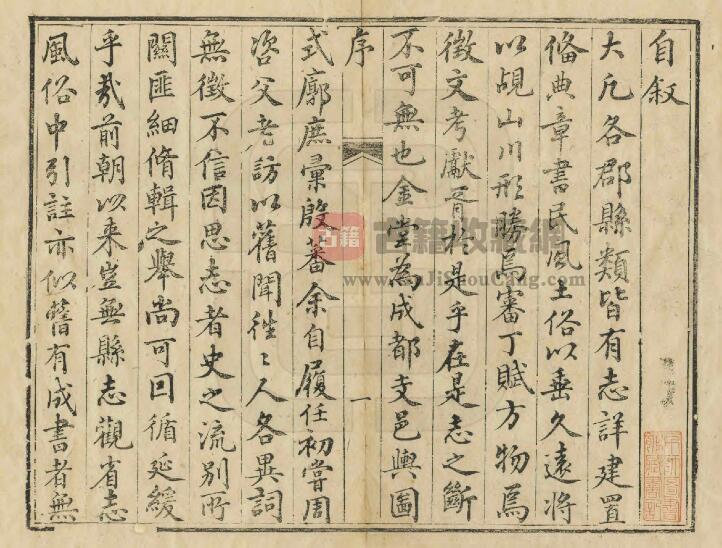 自叙
大凡各郡縣類皆有志詳建置
俻典章書民風土俗以垂久遠將
以覘山川形勝焉審丁賦方物焉
徵文考獻胥於是乎在是志之斷
不可無也金堂為成都支邑輿圖
序 一
式廓庶彙殷蕃余自履任初嘗周
咨父老訪以舊聞徃〻人各異詞
無徵不信因思志者史之流别所
關匪細脩輯之舉尚可囙循延緩
乎哉前朝以来豈無縣志觀省志
風俗中引註亦似舊有成書者無
古籍 古籍收藏網
www.GuJiShouCang.com